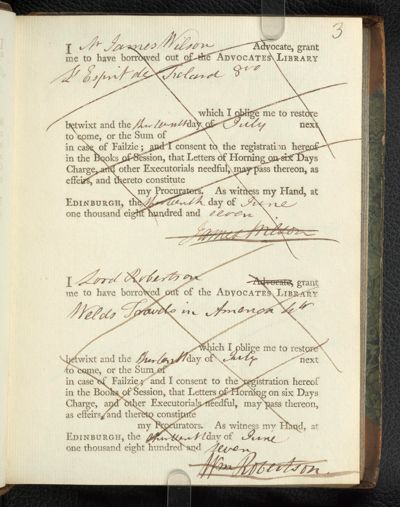 3
I Mr James Wilson Advocate, grant
me to have borrowed out of the ADVOCATES LIBRARY
L'Esprit de Ireland 8vo
which I oblige me to restore
betwixt and the thirteenth day of July next
to come, or the Sum of
in case of Failzie; and I consent to the registration hereof
in the Books of Session, that Letters of Horning on six Days
Charge, and other Executorials needful, may pass thereon, as
effeirs, and thereto constitute
my Procurators. As witness my Hand, at
EDINBURGH, the thirteenth day of June
one thousand eight hundred and seven
James Wilson
I Lord Robertson Advocate, grant
me to have borrowed out of the ADVOCATES LIBRARY
Welds Travels in America 4to
which I oblige me to restore
betwixt and the thirteenth day of July next
to come, or the Sum of
in case of Failzie; and I consent to the registration hereof
in the Books of Session, that Letters of Horning on six Days
Charge, and other Executorials needful, may pass thereon,
as effeirs, and thereto constitute
my Procurators. As witness my Hand, at
EDINBURGH, the thirteenth day of June
one thousand eight hundred and seven
Wm Robertson.